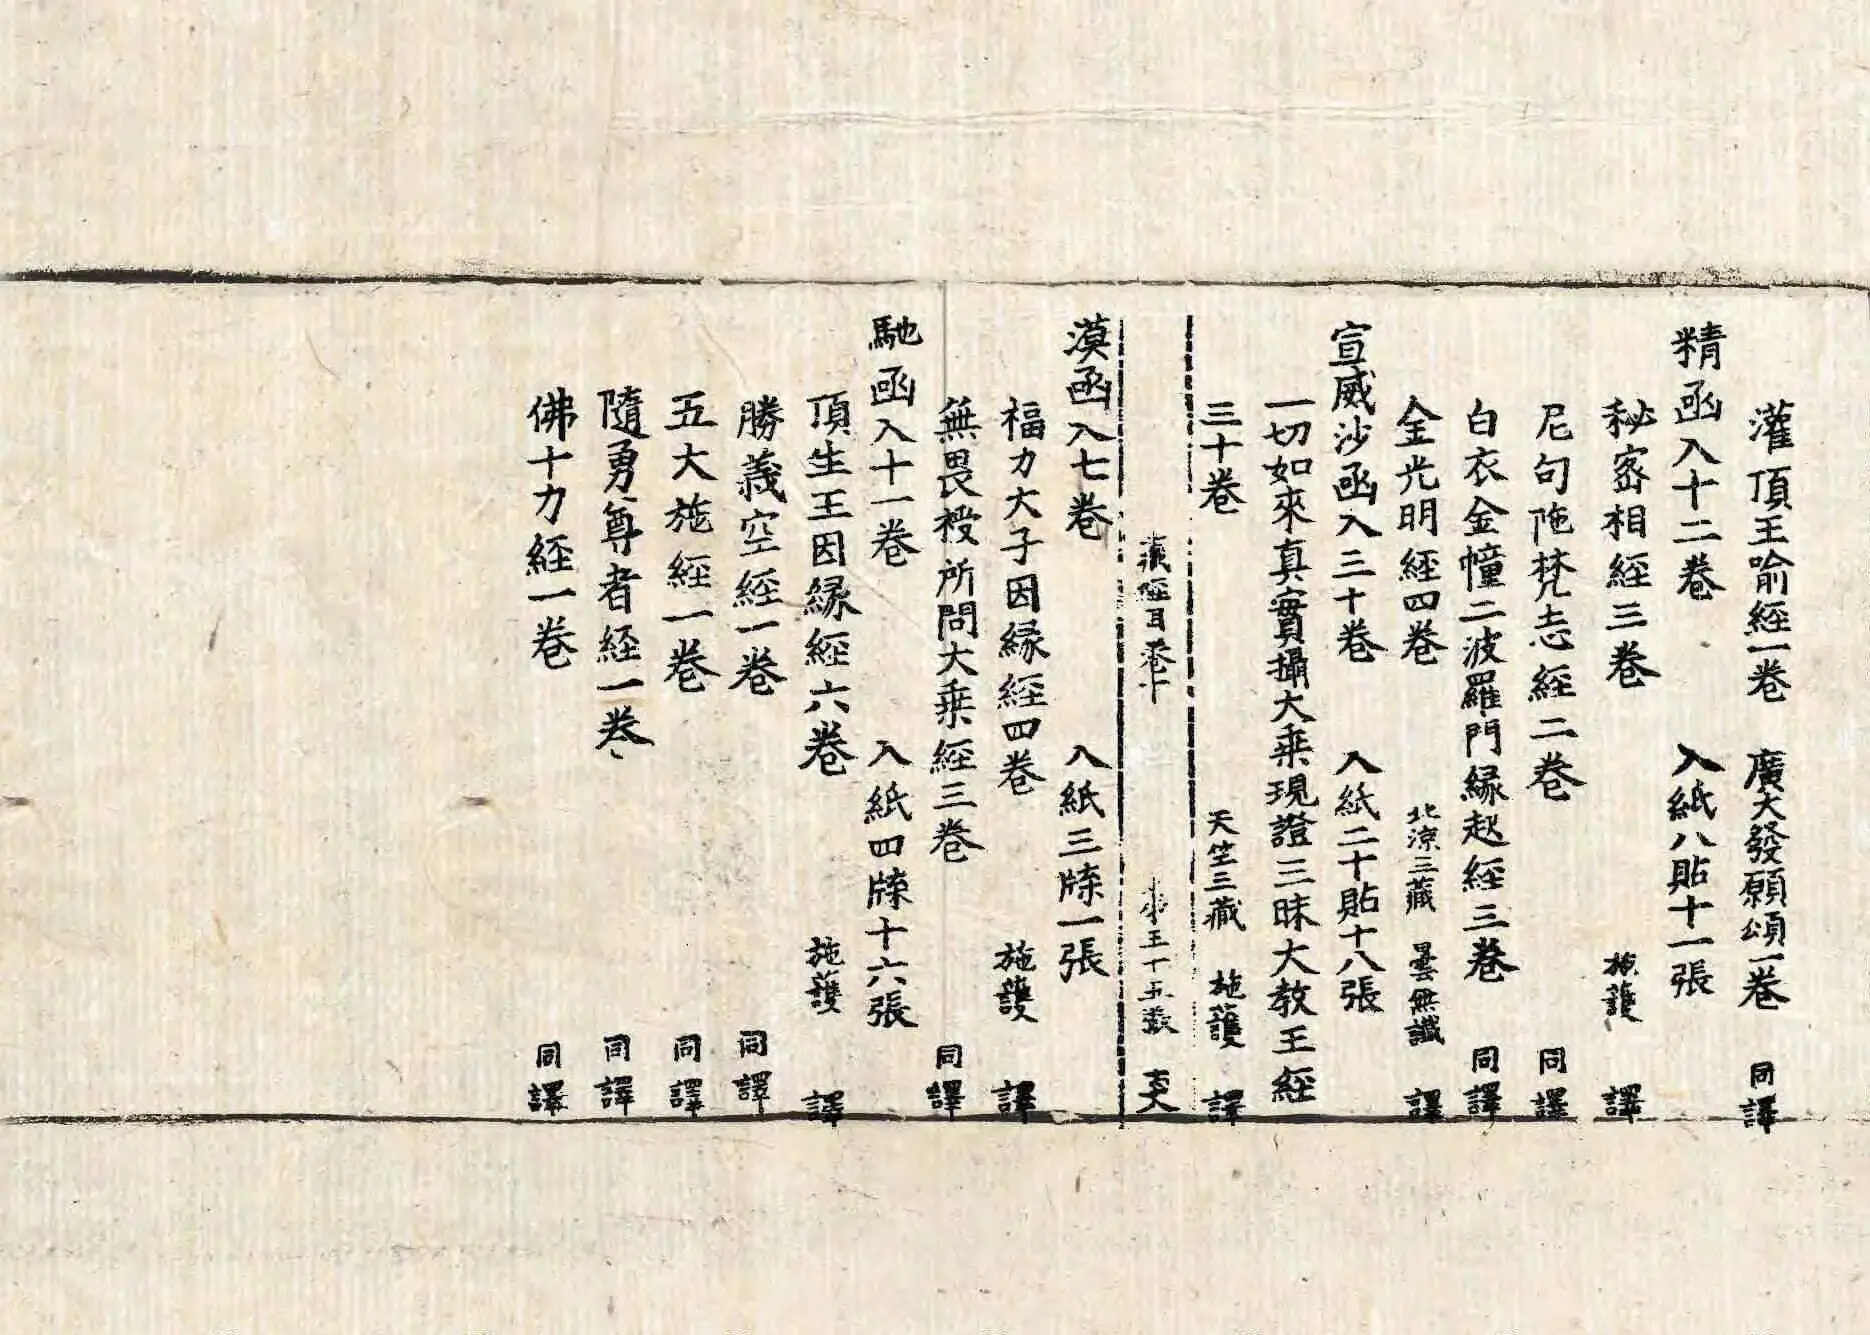 灌頂王喻經一卷　廣大發願頌一卷　同譯
精函入十二卷　入紙八貼十一張
秘密相經三卷　施護　譯
尼句陁梵志經二卷　同譯
白衣金幢二波羅門緣起經三卷　同譯
金光明經四卷　北涼三藏　曇無讖　譯
宣威沙函入三十卷　入紙二十貼十八張
一切如來真實攝大乘現證三昧大教王經
三十卷　天竺三藏　施護　譯
藏經目卷　第五十五張
漠函入七卷　入紙三牒一張
福力大子因緣經四卷　施護　譯
無畏授所問大乘經三卷　同譯
馳函入十一卷　入紙四牒十六張
頂生王因緣經六卷　施護　譯
勝義空經一卷　同譯
五大施經一卷　同譯
隨勇尊者経一卷　同譯
佛十力経一卷　同譯